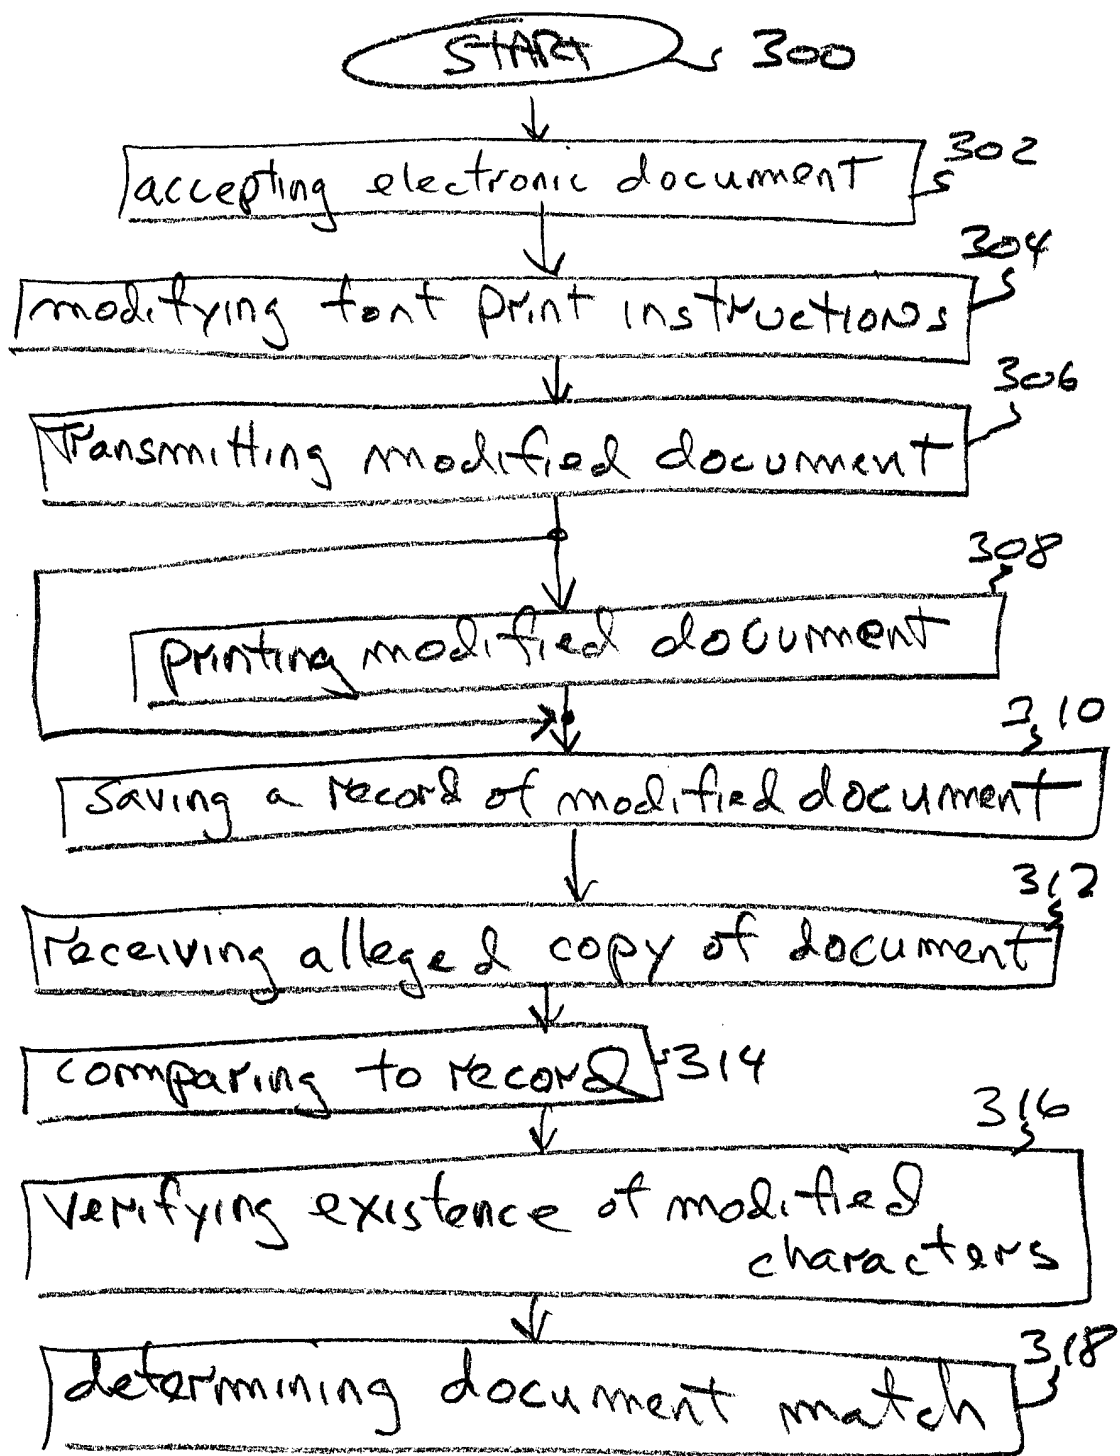 START 300
302
accepting electronic document
304
modifying font print instructions
306
Transmitting modified document
308
printing modified document
310
saving a record of modified document
312
receiving alleged copy of document
comparing to record 314
316
verifying existence of modified
characters
318
determining document match